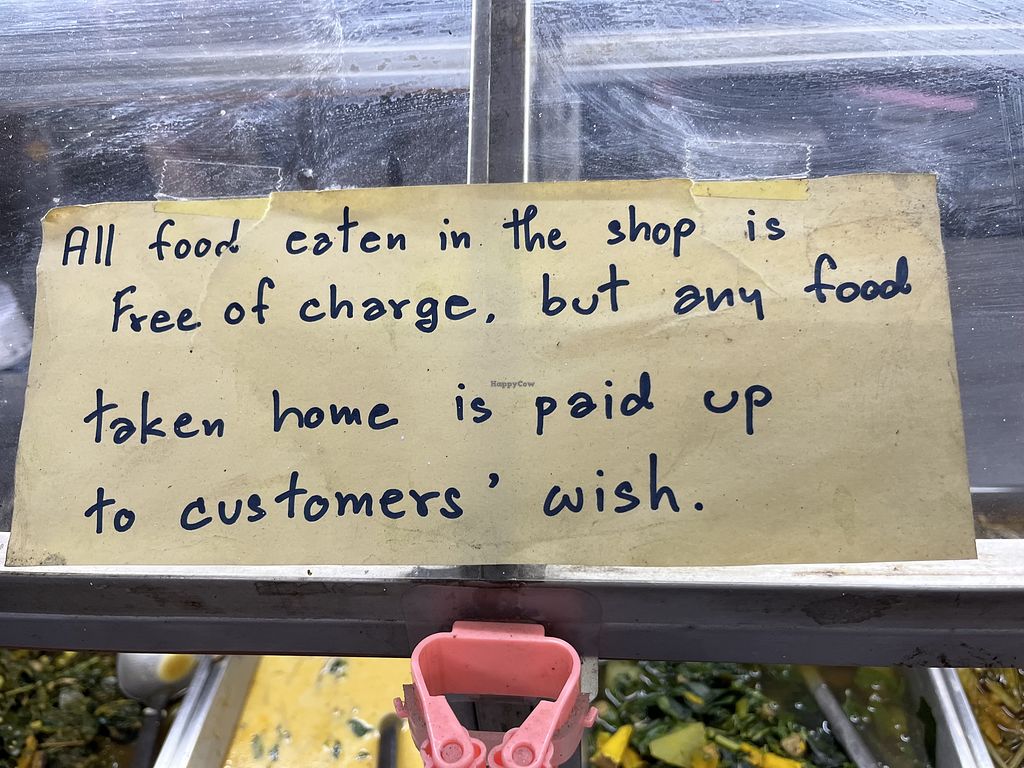 All food eaten in the shop is
Free of charge, but any food
HappyCow
taken home is paid up
to customers' wish.